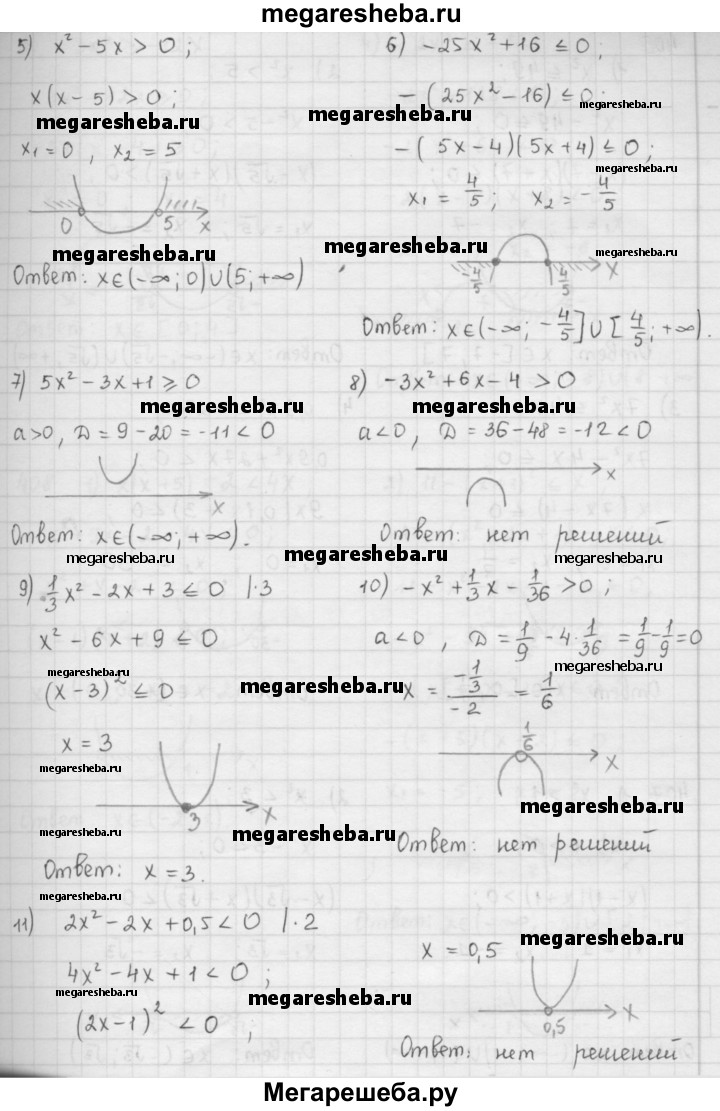 megaresheba.ru
5) x² - 5x > 0 ;
x(x - 5) > 0 ;
megaresheba.ru
x₁ = 0 , x₂ = 5
0 5 x
megaresheba.ru
Ответ: x∈(-∞; 0)∪(5; +∞)
6) -25x² + 16 ≤ 0 ;
-(25x² - 16) ≤ 0 ;
megaresheba.ru
megaresheba.ru
-(5x - 4)(5x + 4) ≤ 0 ;
megaresheba.ru
x₁ = 4/5 ; x₂ = -4/5
megaresheba.ru
-4/5 4/5 x
Ответ: x∈(-∞; -4/5]∪[4/5; +∞).
7) 5x² - 3x + 1 ≥ 0
megaresheba.ru
a>0, D = 9 - 20 = -11 < 0
x
Ответ: x∈(-∞; +∞).
megaresheba.ru
8) -3x² + 6x - 4 > 0
megaresheba.ru
a<0, D = 36 - 48 = -12 < 0
x
Ответ: нет решений
megaresheba.ru
megaresheba.ru
9) 1/3 x² - 2x + 3 ≤ 0 |·3
x² - 6x + 9 ≤ 0
megaresheba.ru
(x - 3)² ≤ 0
megaresheba.ru
x = 3
megaresheba.ru
3 x
megaresheba.ru
megaresheba.ru
Ответ: x = 3.
megaresheba.ru
10) -x² + 1/3 x - 1/36 > 0 ;
a<0 , D = 1/9 - 4·1/36 = 1/9 - 1/9 = 0
megaresheba.ru
megaresheba.ru
x = (-1/3)/(-2) = 1/6
1/6 x
megaresheba.ru
Ответ: нет решений
11) 2x² - 2x + 0,5 < 0 |·2
4x² - 4x + 1 < 0 ;
megaresheba.ru
megaresheba.ru
(2x - 1)² < 0 ;
megaresheba.ru
x = 0,5
0,5 x
megaresheba.ru
Ответ: нет решений
Мегарешеба.ру